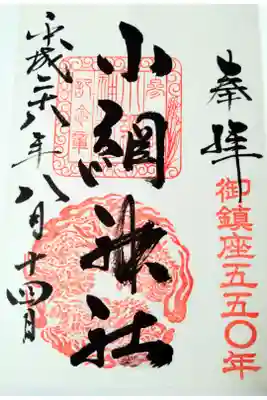 奉拝
御鎮座五五〇年
小網神社
平成二八年八月十四日